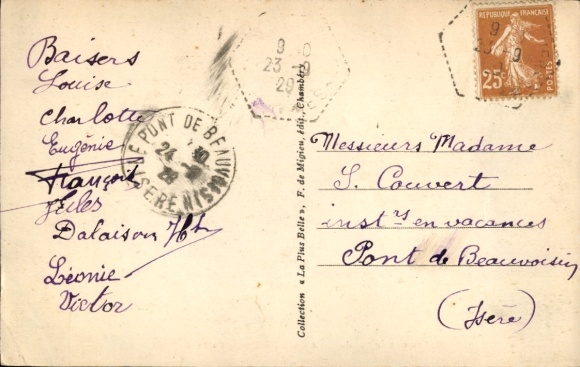 Baisers
Louise
Charlotte
Eugénie
François
Jules
Dalaison
Léonie
Victor
LE PONT DE BEAUVOISIN
ISERE
24
29
9
23-9
29
REPUBLIQUE FRANÇAISE
25c
POSTES
Collection « La Plus Belle ». F. de Migieu, édit., Chambéry
Messieurs Madame
S. Couvert
inst.rs en vacances
Pont de Beauvoisin
(Isère)